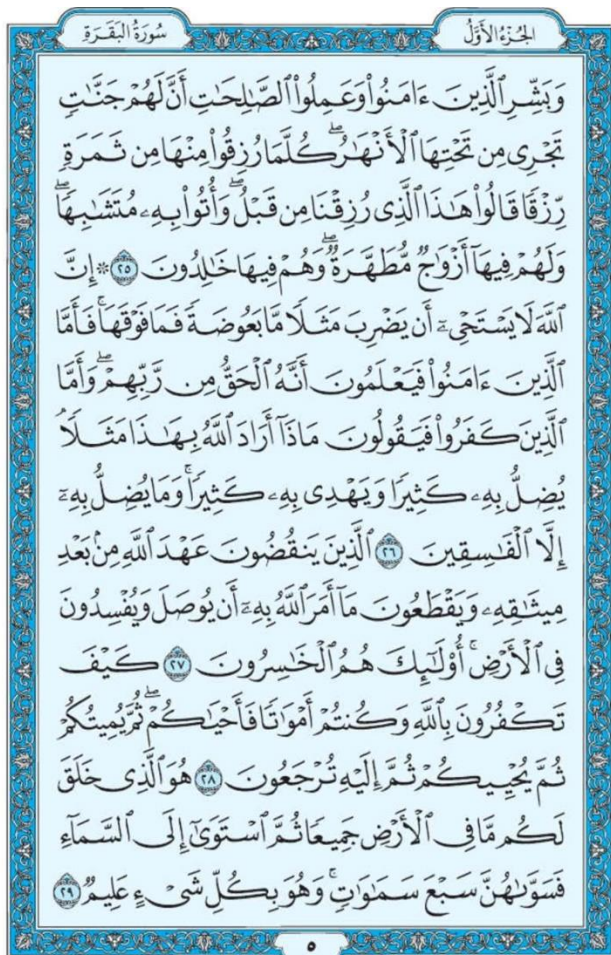 الجُزْءُ الأَوَّلُ
سُورَةُ البَقَرَةِ
وَبَشِّرِ ٱلَّذِينَ ءَامَنُواْ وَعَمِلُواْ ٱلصَّٰلِحَٰتِ أَنَّ لَهُمْ جَنَّٰتٍ
تَجْرِى مِن تَحْتِهَا ٱلْأَنْهَٰرُۖ كُلَّمَا رُزِقُواْ مِنْهَا مِن ثَمَرَةٍ
رِّزْقًا قَالُواْ هَٰذَا ٱلَّذِى رُزِقْنَا مِن قَبْلُۖ وَأُتُواْ بِهِۦ مُتَشَٰبِهًاۖ
وَلَهُمْ فِيهَآ أَزْوَٰجٌ مُّطَهَّرَةٌۖ وَهُمْ فِيهَا خَٰلِدُونَ ٢٥ ۞ إِنَّ
ٱللَّهَ لَا يَسْتَحْىِۦٓ أَن يَضْرِبَ مَثَلًا مَّا بَعُوضَةً فَمَا فَوْقَهَاۚ فَأَمَّا
ٱلَّذِينَ ءَامَنُواْ فَيَعْلَمُونَ أَنَّهُ ٱلْحَقُّ مِن رَّبِّهِمْۖ وَأَمَّا
ٱلَّذِينَ كَفَرُواْ فَيَقُولُونَ مَاذَآ أَرَادَ ٱللَّهُ بِهَٰذَا مَثَلًاۘ
يُضِلُّ بِهِۦ كَثِيرًا وَيَهْدِى بِهِۦ كَثِيرًاۚ وَمَا يُضِلُّ بِهِۦٓ
إِلَّا ٱلْفَٰسِقِينَ ٢٦ ٱلَّذِينَ يَنقُضُونَ عَهْدَ ٱللَّهِ مِنۢ بَعْدِ
مِيثَٰقِهِۦ وَيَقْطَعُونَ مَآ أَمَرَ ٱللَّهُ بِهِۦٓ أَن يُوصَلَ وَيُفْسِدُونَ
فِى ٱلْأَرْضِۚ أُوْلَٰٓئِكَ هُمُ ٱلْخَٰسِرُونَ ٢٧ كَيْفَ
تَكْفُرُونَ بِٱللَّهِ وَكُنتُمْ أَمْوَٰتًا فَأَحْيَٰكُمْۖ ثُمَّ يُمِيتُكُمْ
ثُمَّ يُحْيِيكُمْ ثُمَّ إِلَيْهِ تُرْجَعُونَ ٢٨ هُوَ ٱلَّذِى خَلَقَ
لَكُم مَّا فِى ٱلْأَرْضِ جَمِيعًا ثُمَّ ٱسْتَوَىٰٓ إِلَى ٱلسَّمَآءِ
فَسَوَّىٰهُنَّ سَبْعَ سَمَٰوَٰتٍۚ وَهُوَ بِكُلِّ شَىْءٍ عَلِيمٌ ٢٩
٥